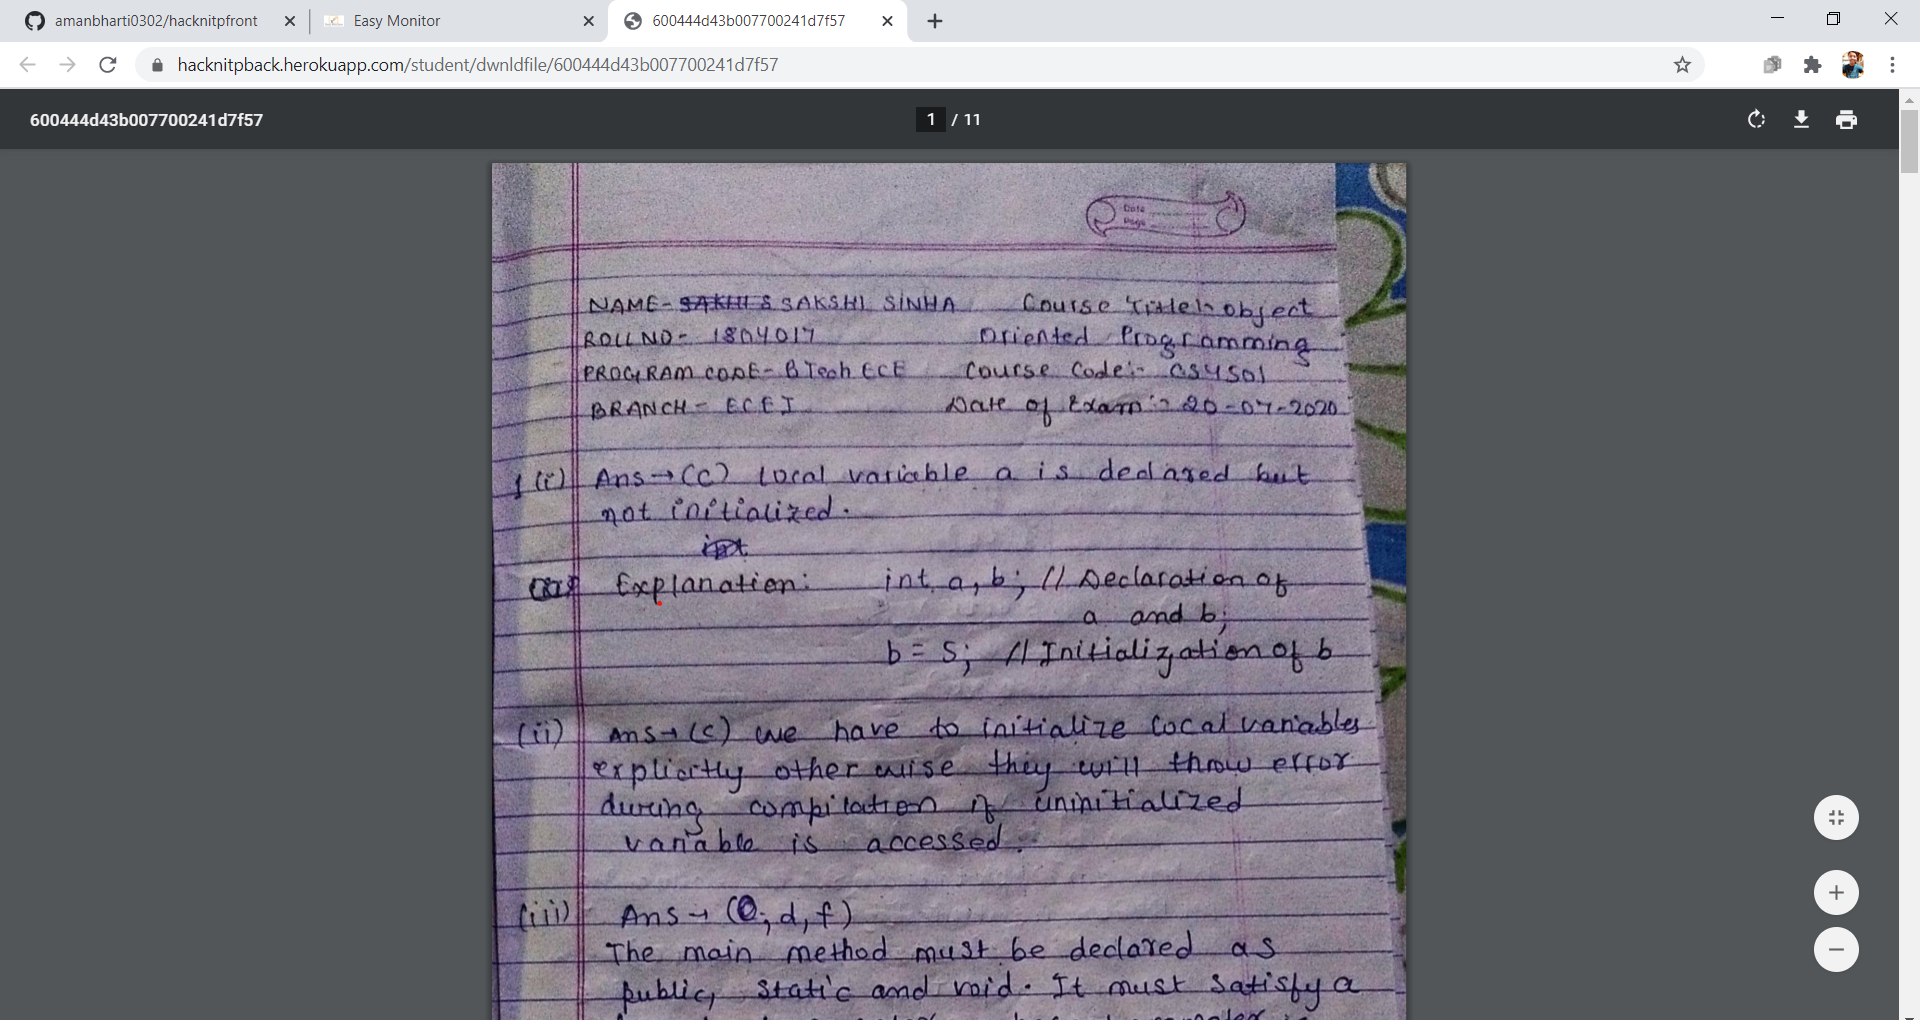 amanbharti0302/hacknitpfront
Easy Monitor
600444d43b007700241d7f57
hacknitpback.herokuapp.com/student/dwnldfile/600444d43b007700241d7f57
600444d43b007700241d7f57
1 / 11
Date
Page
NAME- SAKSHI SINHA Course Title:- object
ROLL NO- 1804017 Oriented Programming
PROGRAM CODE- BTech ECE Course Code:- CS4501
BRANCH- ECE I Date of Exam:- 20-07-2020
1 (i) Ans→(c) Local variable a is declared but
not initialized.
int
Explanation: int a, b; // Declaration of
a and b;
b = 5; // Initialization of b
(ii) Ans→(c) we have to initialize local variables
explicitly otherwise they will throw error
during compilation if uninitialized
variable is accessed.
(iii) Ans→ ( , d, f)
The main method must be declared as
public, static and void. It must satisfy a